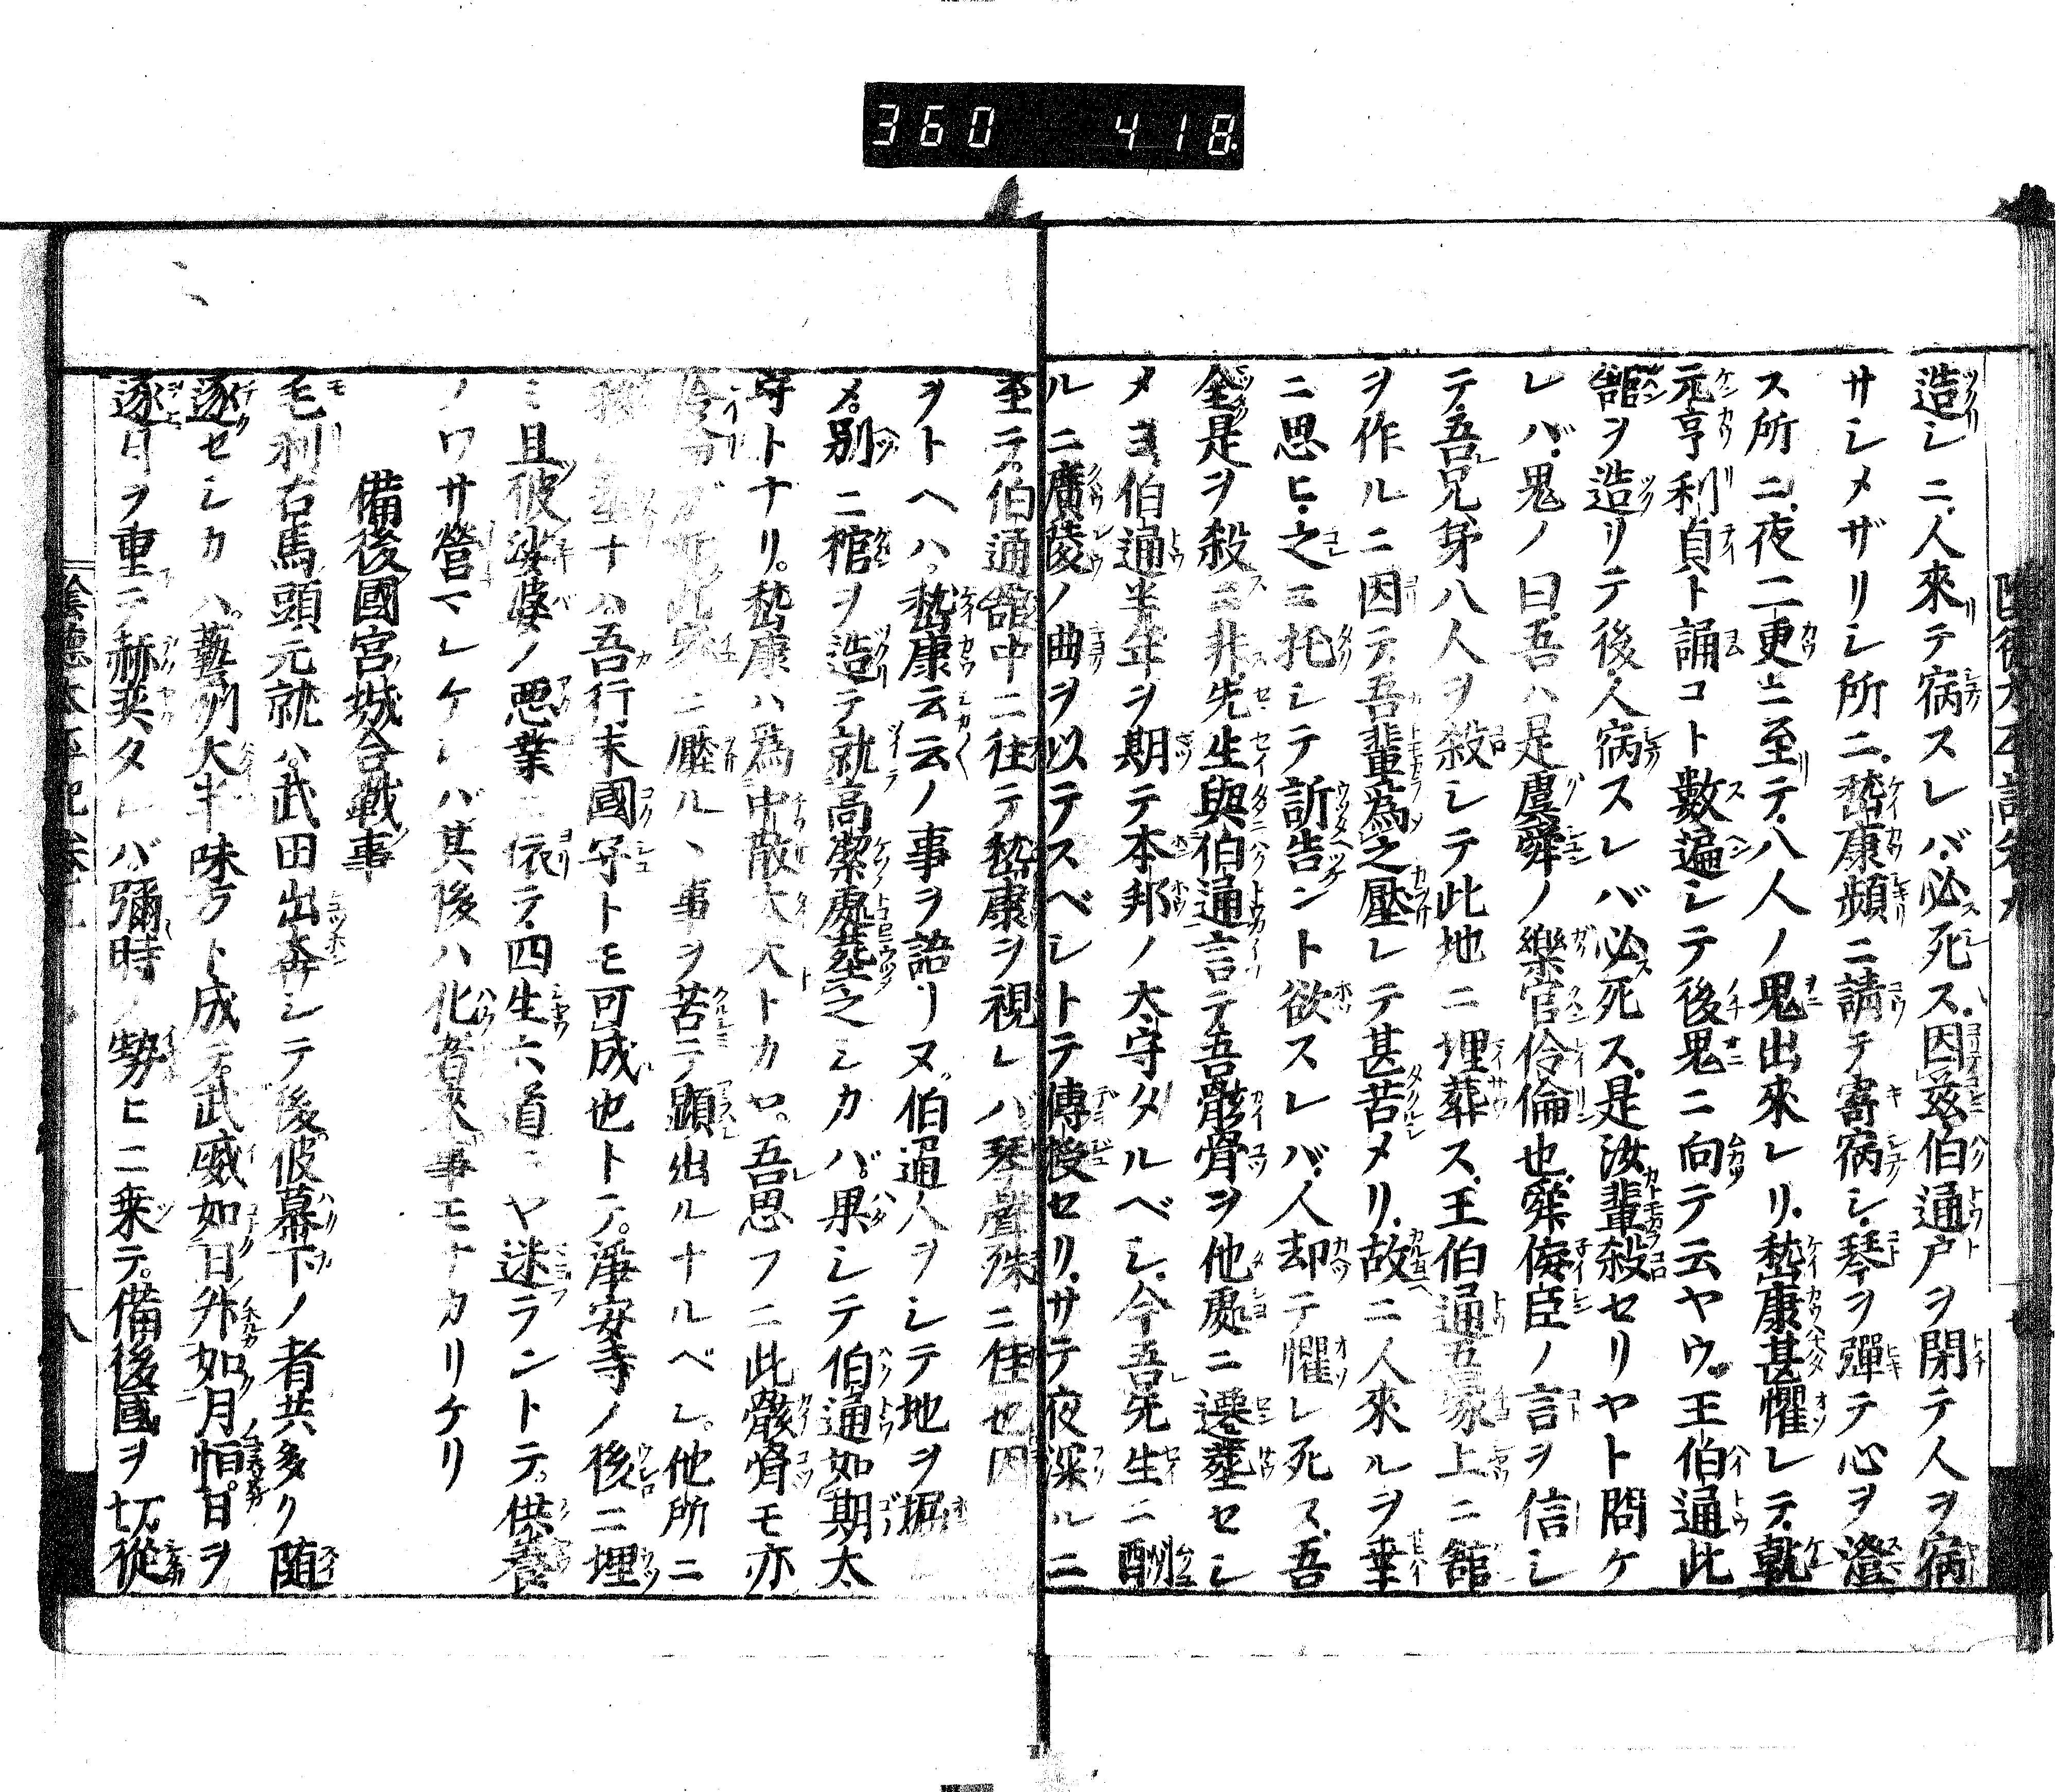 360 418
造シニ、人來テ病スレバ、必死ス。因茲伯通戸ヲ閉テ人ヲ病
サシメザリシ所ニ、嵆康頻ニ請テ寄病シ、琴ヲ彈テ心ヲ澄
ス所ニ、夜二更ニ至テ、八人ノ鬼出來レリ。嵆康甚懼レテ、乾
元亨利貞ト誦コト數遍シテ後鬼ニ向テ云ヤウ。王伯通此
舘ヲ造リテ後、人病スレバ必死ス。是汝輩殺セリヤト問ケ
レバ、鬼ノ曰、吾ハ是虞舜ノ樂官伶倫也。舜侫臣ノ言ヲ信シ
テ、吾兄弟八人ヲ殺シテ此地ニ埋葬ス。王伯通吾冢上ニ舘
ヲ作ルニ因テ、吾輩為之壓レテ甚苦メリ。故ニ人來ルヲ幸
ニ思ヒ、之ニ托シテ訴告ント欲スレバ、人却テ懼レ死ス。吾
全是ヲ殺ニ非ス。先生與伯通言テ吾骸骨ヲ他處ニ遷葬セシ
メヨ。伯通半年ヲ期テ本邦ノ太守タルベシ。今吾先生ニ酬
ルニ廣陵ノ曲ヲ以テスベシトテ傳授セリ。サテ夜深ルニ
至テ、伯通舘中ニ往テ嵆康ヲ視レバ琴聲殊ニ佳也。因
ヲトヘハ、嵆康云云ノ事ヲ語リヌ。伯通人ヲシテ地ヲ堀
メ。別ニ棺ヲ造テ就高潔處葬之シカバ。果シテ伯通如期太
守トナリ。嵆康ハ為中散太夫トカヤ。吾思フニ此骸骨モ亦
ニ壓ルヽ事ヲ苦テ顕出ルナルベシ。他所ニ
ナハ吾行末國守トモ可成也トテ。淨安寺ノ後ニ埋
ミ且彼娑婆ノ悪業ニ依テ、四生六道ニヤ迷ラントテ。供養
ノワサ營マレケレバ其後ハ化者ノ事モナカリケリ
備後國宮城合戰事
毛利右馬頭元就ハ。武田出奔シテ後。彼幕下ノ者共多ク随
逐セシカハ。藝州大半味方ト成テ。武威如日升如月恒。日ヲ
逐月ヲ重ニテ赫奕タレバ彌時ノ勢ヒニ乗テ。備後國ヲ切從
陰徳太平記巻九
十八